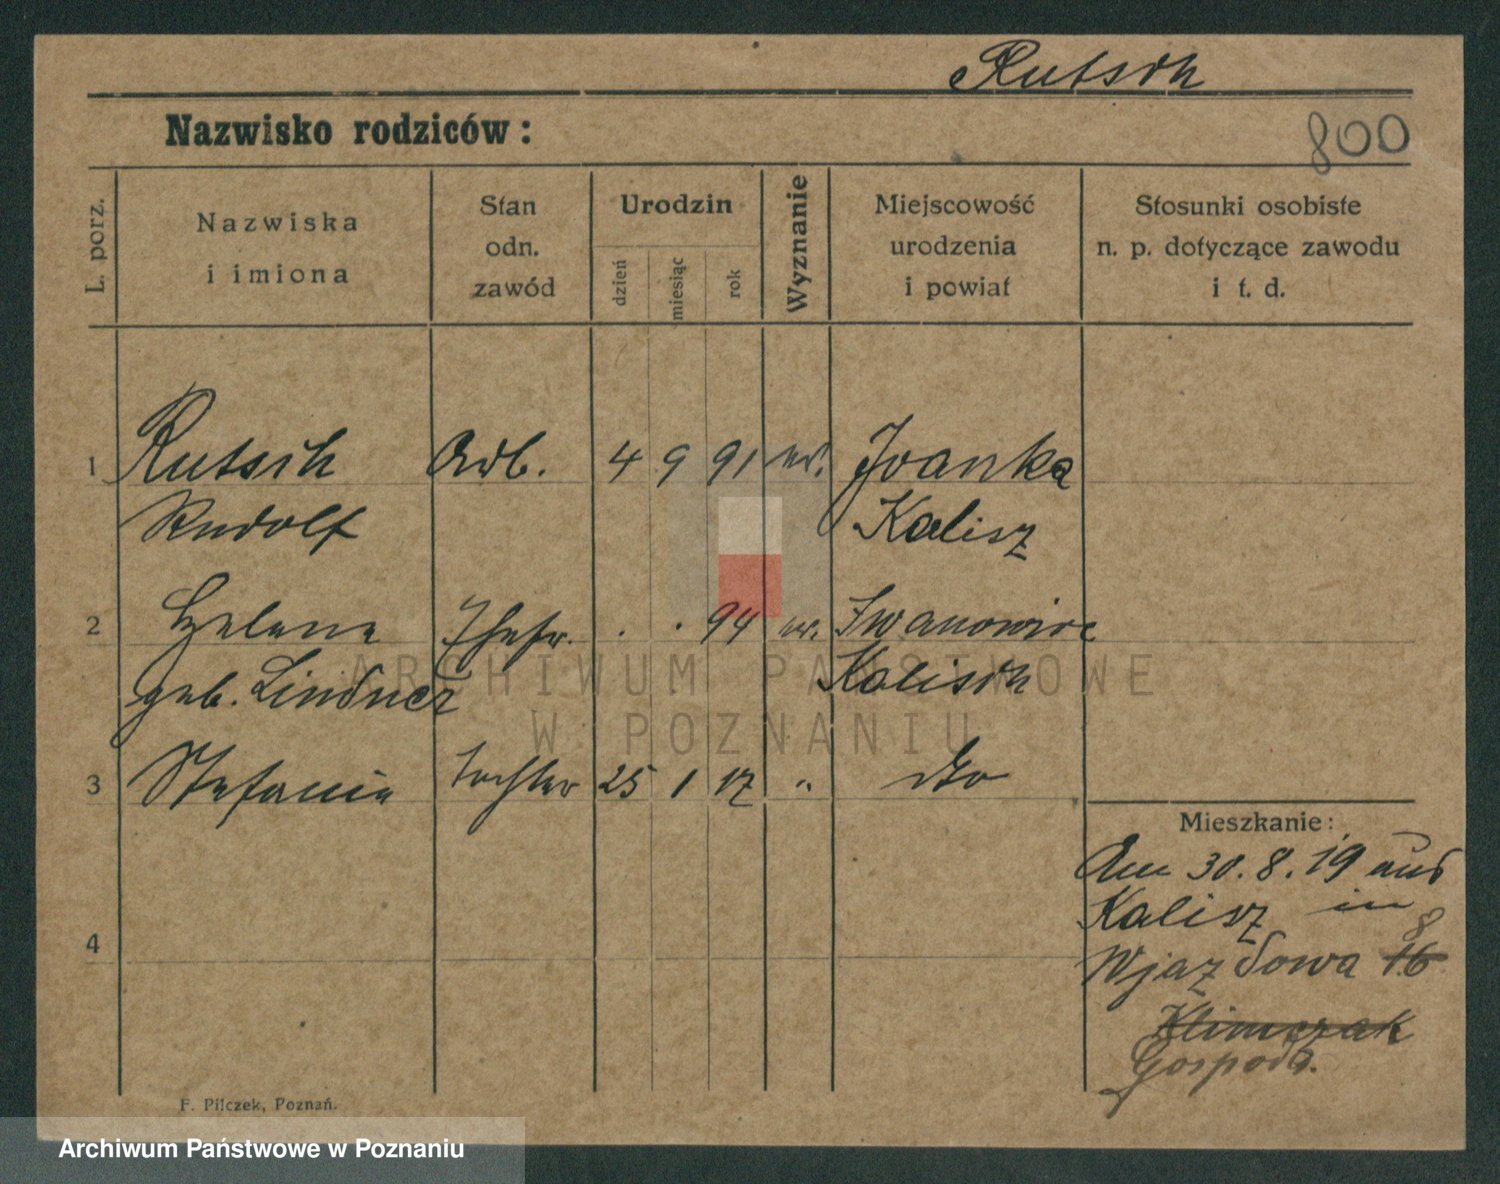 Rutsch
Nazwisko rodziców:
800
L. porz.
Nazwiska
i imiona
Stan
odn.
zawód
Urodzin
dzień
miesiąc
rok
Wyznanie
Miejscowość
urodzenia
i powiat
Stosunki osobiste
n. p. dotyczące zawodu
i t. d.
1 Rutsch Arb. 4 9 91 ev. Ivanka
Rudolf Kalisz
2 Helene Ehefr. . . 94 ev. Iwanowice
geb. Lindner Kalisch
3 Stefanie Tochter 25 1 17 " dto
Mieszkanie:
Am 30.8.19 aus
Kalisz in
8
Wjazdowa 16
4
Klimczak
Gospod.
F. Pilczek, Poznań.
ARCHIWUM PAŃSTWOWE
W POZNANIU
Archiwum Państwowe w Poznaniu